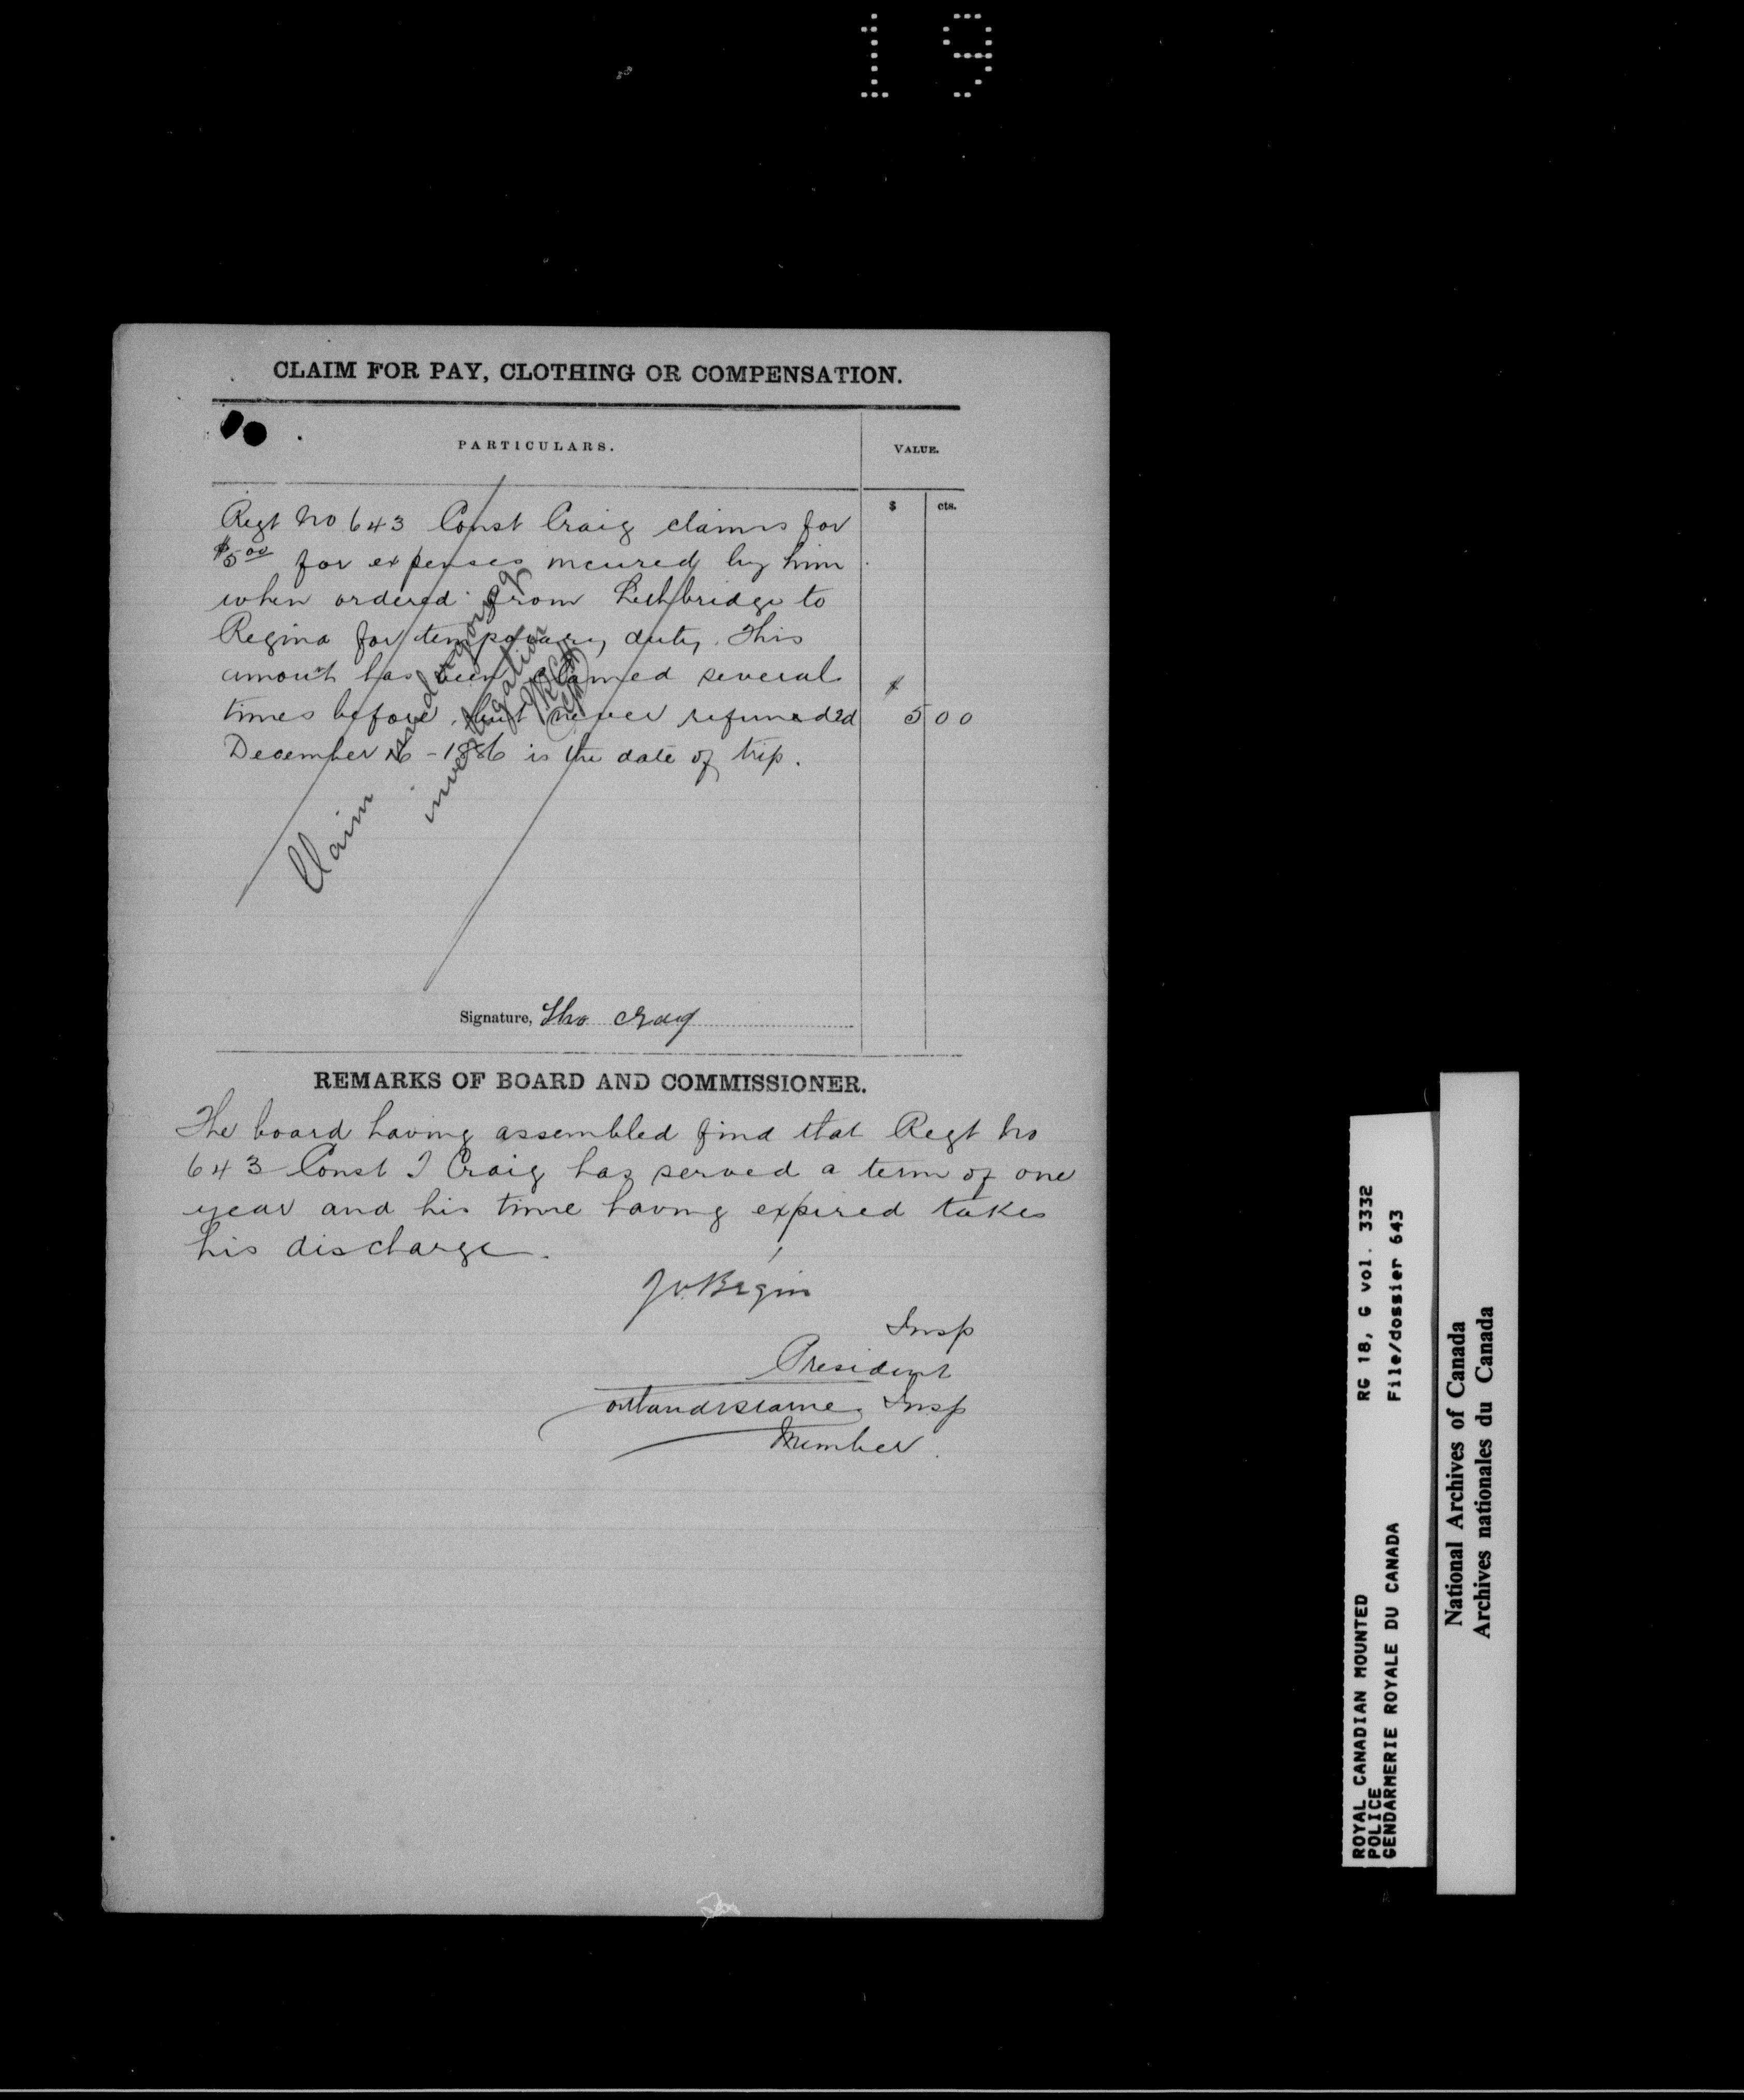 19
CLAIM FOR PAY, CLOTHING OR COMPENSATION.
PARTICULARS.
VALUE.
$ cts.
Regt No 643 Const Craig claims for
$5.00 for expenses incured by him
when ordered from Lethbridge to
Regina for temporary duty. This
amount has been claimed several
times before, but never refunded
$ 5 00
December 16 - 1886 is the date of trip.
Claim undergoing
investigation
Signature, Tho Craig
REMARKS OF BOARD AND COMMISSIONER.
The board having assembled find that Regt No
643 Const T Craig has served a term of one
year and his time having expired takes
his discharge.
JV Begin
Insp
President
Insp
Member.
ROYAL CANADIAN MOUNTED
POLICE
GENDARMERIE ROYALE DU CANADA
RG 18, G vol. 3332
File/dossier 643
National Archives of Canada
Archives nationales du Canada